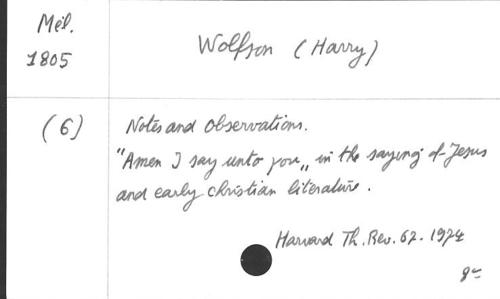 Mél.
1805
Wolfson (Harry)
(6)
Notes and Observations.
"Amen I say unto you„ in the saying of Jesus
and early christian literature.
Harvard Th. Rev. 67. 1974
8°